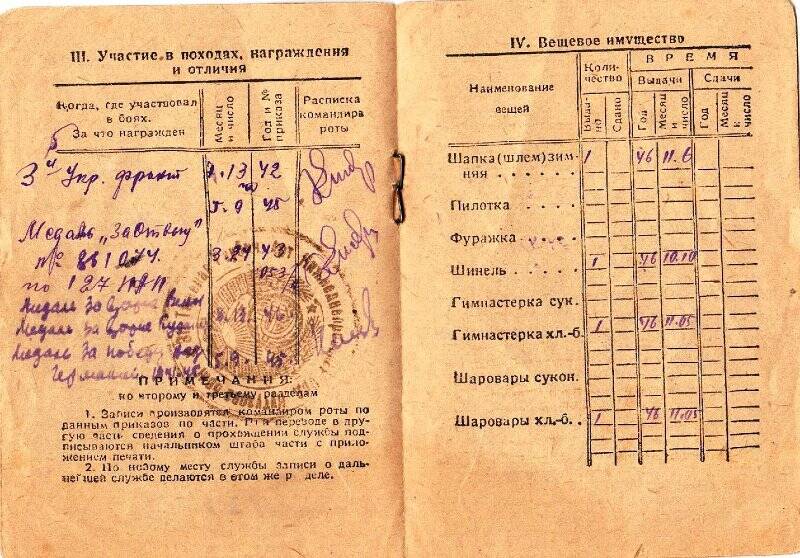 III. Участие в походах, награждения
и отличия
Когда, где участвовал
в боях.
За что награжден
Месяц
и число
Год и №
приказа
Расписка
командира
роты
3й Укр. фронт
42
5.9 45
Медаль „За Отвагу"
№ 861044
3.24 43
по 127
Медаль За
Медаль За
46
Медаль За победу над
Германией
5.9 45
ПРИМЕЧАНИЯ:
ко второму и третьему разделам
1. Записи производятся командиром роты по
данным приказов по части. При переводе в дру-
гую часть сведения о прохождении службы под-
писываются начальником штаба части с прило-
жением печати.
2. По новому месту службы записи о даль-
нейшей службе делаются в этом же разделе.
IV. Вещевое имущество
Наименование
вещей
Коли-
чество
ВРЕМЯ
Выдачи
Сдачи
Выда-
но
Сдано
Год
Месяц
и
число
Год
Месяц
и
число
Шапка (шлем) зим-
няя . . . . . . 1 46 11.6
Пилотка . . . . .
Фуражка . . . .
Шинель . . . . . 1 46 10.10
Гимнастерка сук.
Гимнастерка хл.-б. 1 46 11.05
Шаровары сукон.
Шаровары хл.-б. . 1 46 11.05